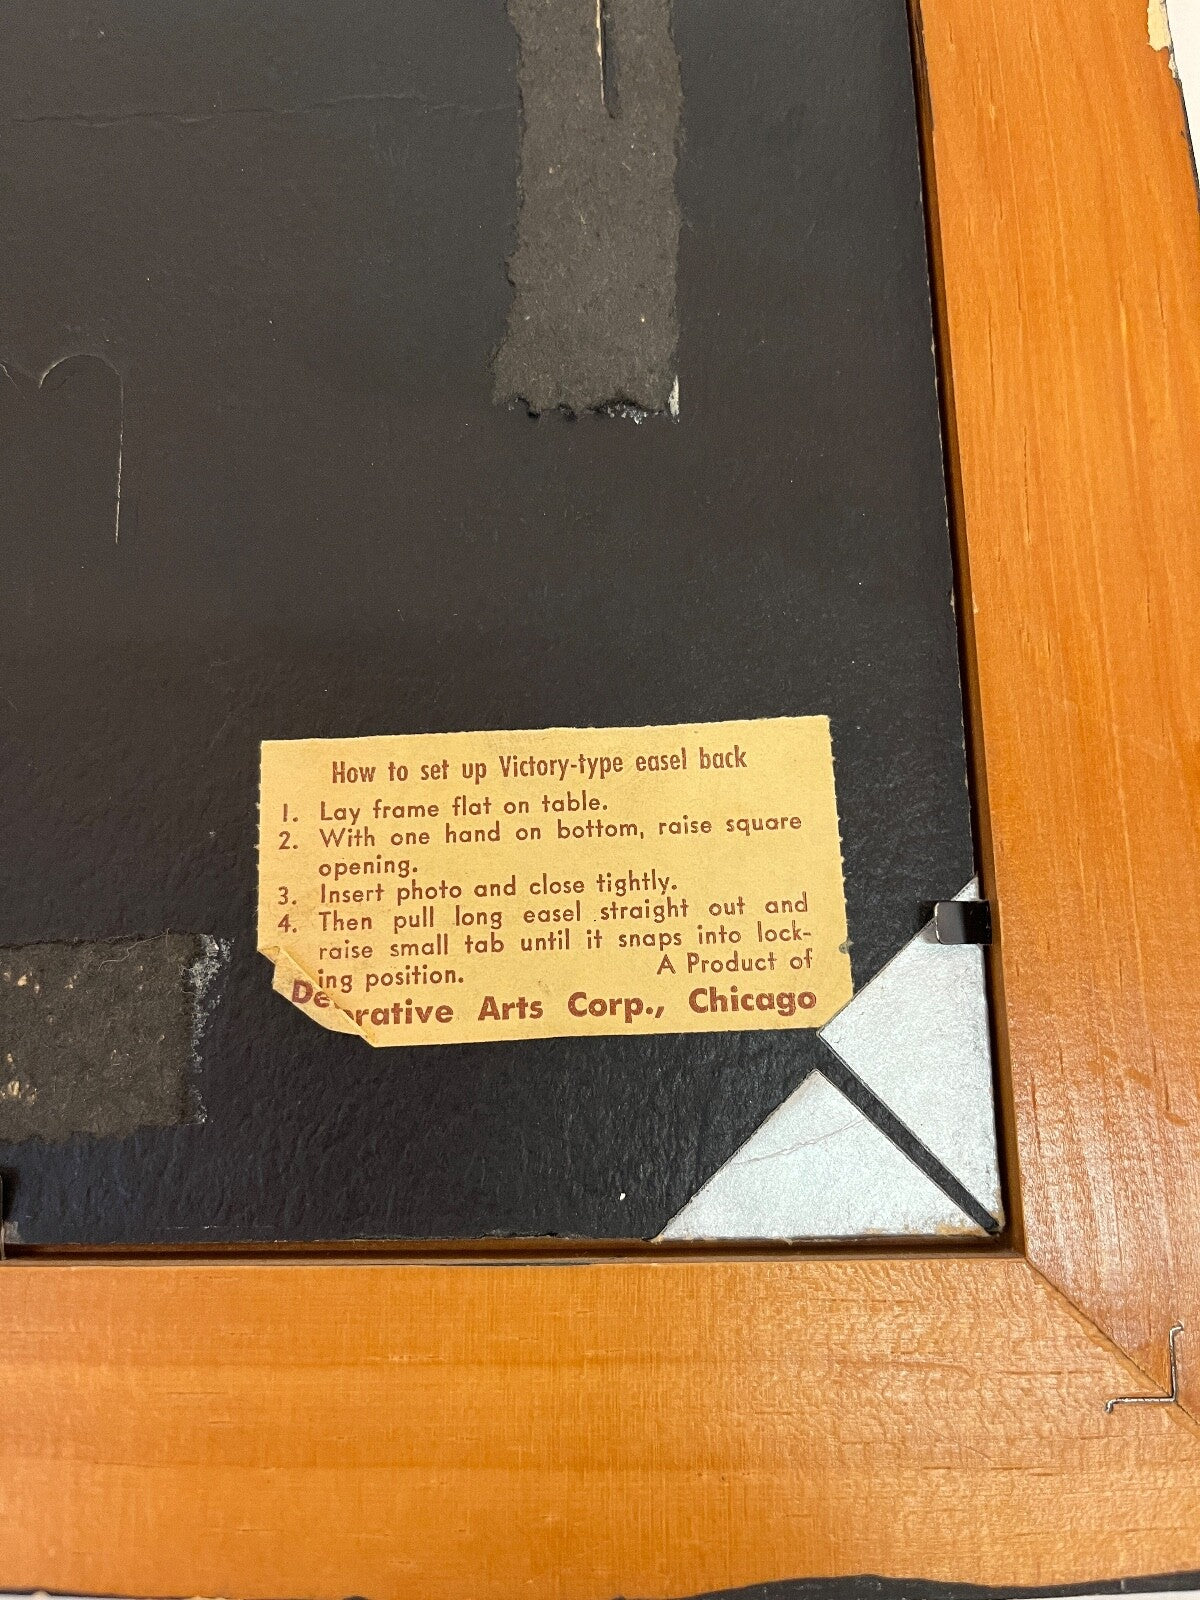 How to set up Victory-type easel back
1. Lay frame flat on table.
2. With one hand on bottom, raise square
opening.
3. Insert photo and close tightly.
4. Then pull long easel straight out and
raise small tab until it snaps into lock-
ing position. A Product of
De rative Arts Corp., Chicago